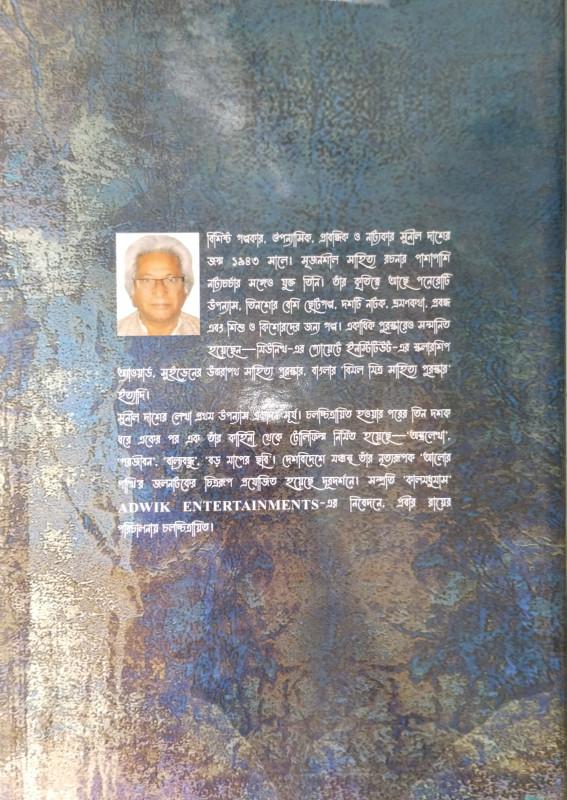 বিশিষ্ট গল্পকার, ঔপন্যাসিক, প্রাবন্ধিক ও নাট্যকার সুনীল দাশের
জন্ম ১৯৪৩ সালে। সৃজনশীল সাহিত্য রচনার পাশাপাশি
নাট্যচর্চার সঙ্গেও যুক্ত তিনি। তাঁর কৃতিত্বে আছে পনেরোটি
উপন্যাস, তিনশোর বেশি ছোটগল্প, দশটি নাটক, ভ্রমণকথা, প্রবন্ধ
এবং শিশু ও কিশোরদের জন্য গল্প। একাধিক পুরস্কারেও সম্মানিত
হয়েছেন—মিউনিখ-এর গ্যোয়েটে ইনস্টিটিউট-এর স্কলারশিপ
অ্যাওয়ার্ড, সুইডেনের উত্তরাপথ সাহিত্য পুরস্কার, বাংলার বিমল মিত্র সাহিত্য পুরস্কার
ইত্যাদি।
সুনীল দাশের লেখা প্রথম উপন্যাস সূর্য। চলচ্চিত্রায়িত হওয়ার পরের তিন দশক
ধরে একের পর এক তাঁর কাহিনী থেকে টেলিফিল্ম নির্মিত হয়েছে—'অন্তলেখা',
'পরজীবন', 'বাল্যবন্ধু', 'বড় মাপের ছবি'। দেশবিদেশে মঞ্চস্থ তাঁর নৃত্যরূপক 'আলোর
পাখি'র জলনাটকের চিত্ররূপ প্রযোজিত হয়েছে দূরদর্শনে। সম্প্রতি
ADWIK ENTERTAINMENTS-এর নিবেদনে, এবার রায়ের
পরিচালনায় চলচ্চিত্রায়িত।